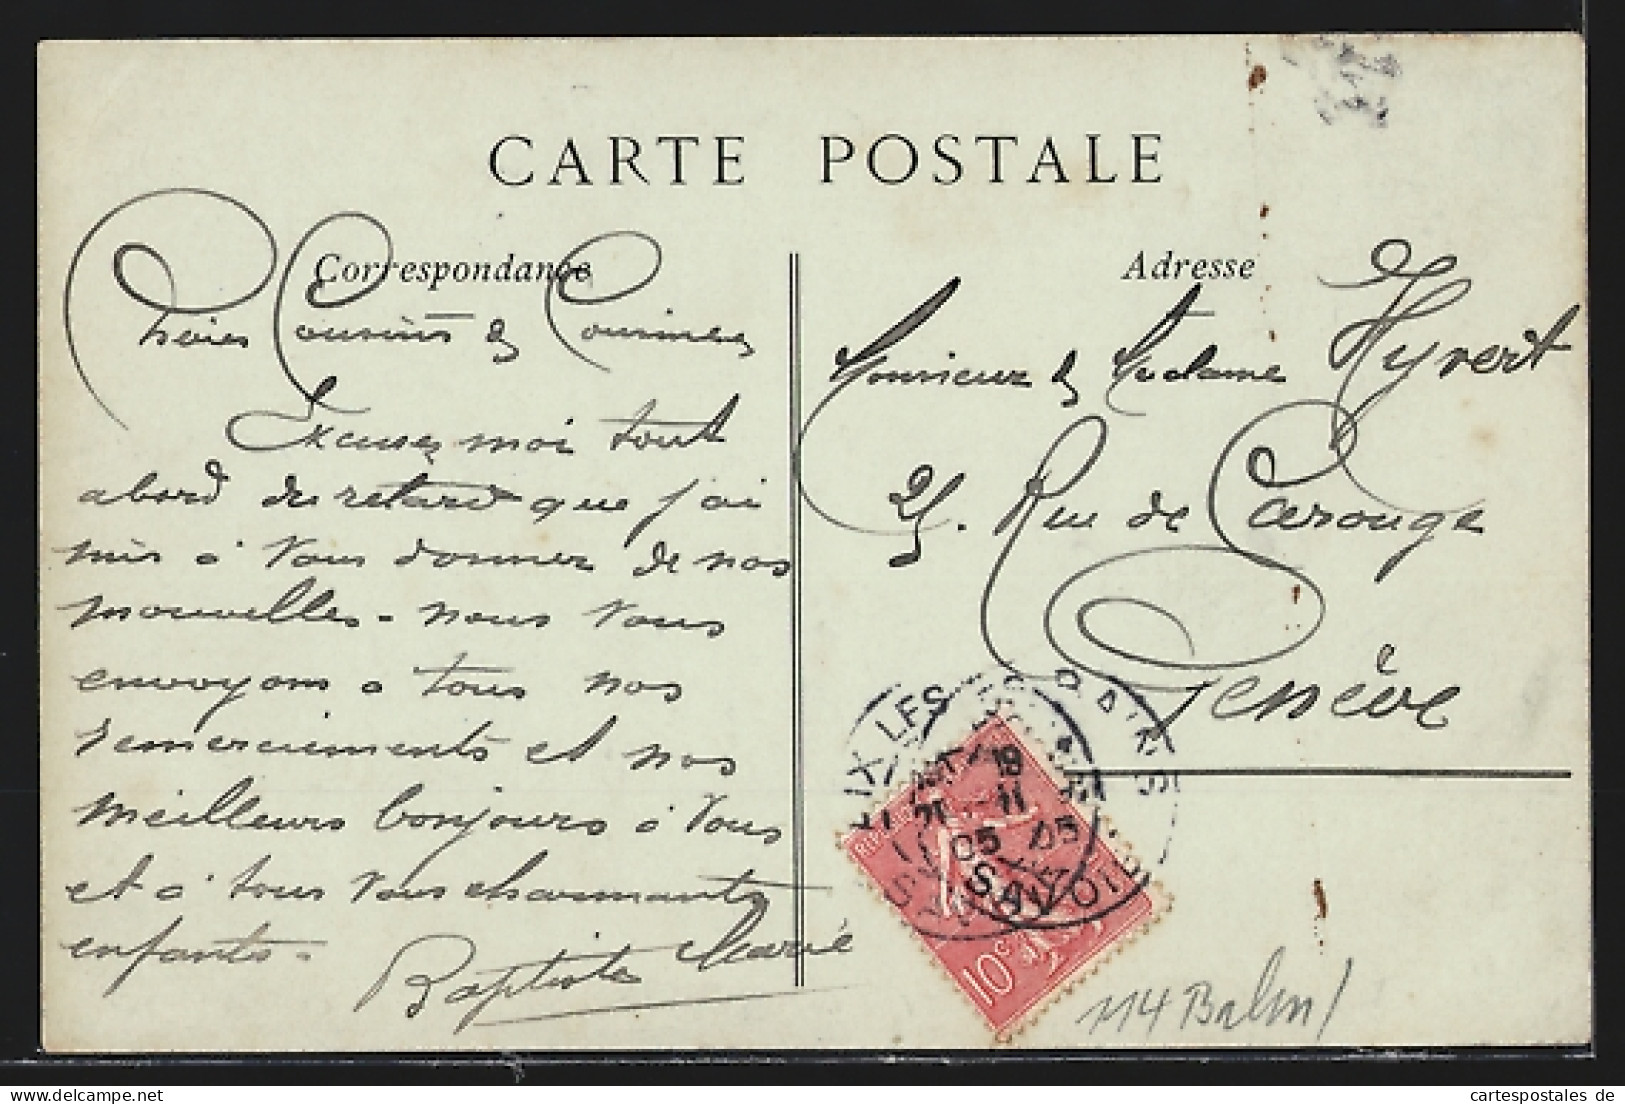 CARTE POSTALE
Correspondance
Adresse
Chères Cousins & Cousines
Excusez moi tout
abord du retard que j'ai
mis à Vous donner de nos
nouvelles - nous Vous
envoyons à tous nos
remerciements et nos
meilleurs bonjours à Vous
et à tous Vos charmants
enfants -
Baptiste Marie
Monsieur & Madame Hyvert
25. Rue de Carouge
Genève
AIX LES BAINS
21 - 11
05
SAVOIE
10c
114 Balm/
cartespostales de